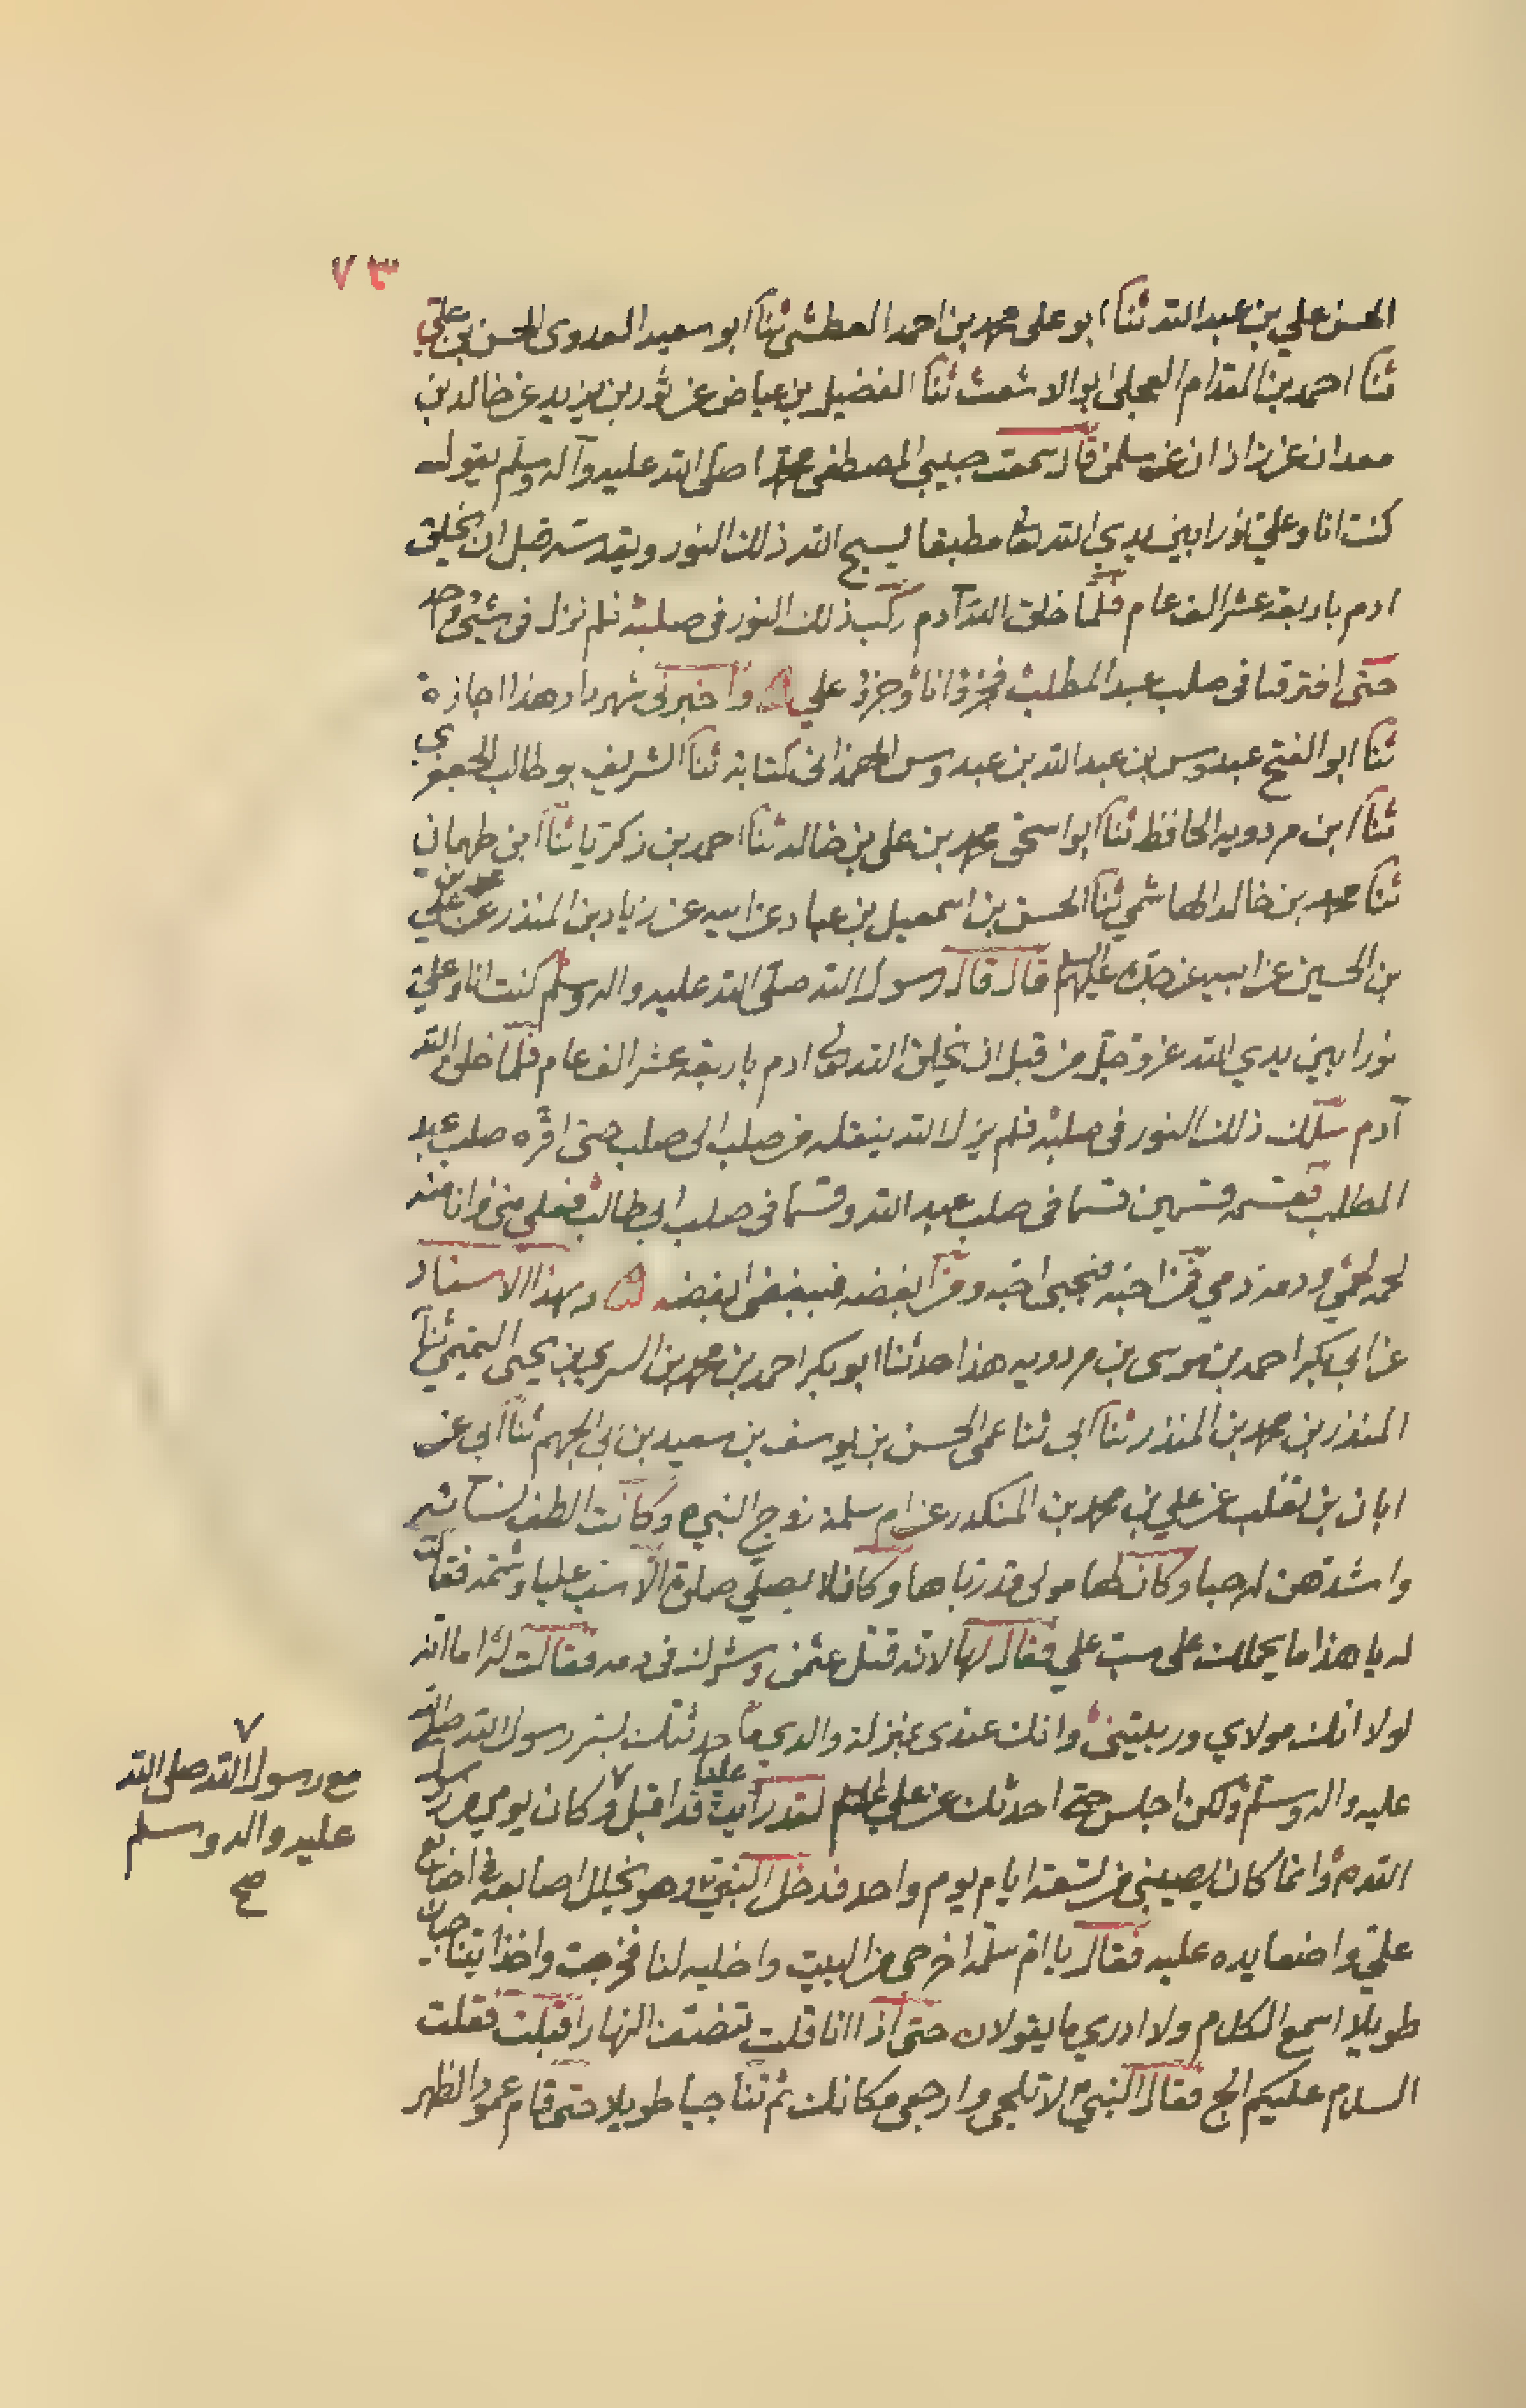 ٧٣
الحسن علي بن عبد الله ثنا ابو على محمد بن احمد العطشى ثنا ابو سعيد العدوى الحسن بن علي
ثنا احمد بن المقدام العجلى ابو الاشعث ثنا الفضيل بن عياض عن ثور بن يزيد عن خالد بن
معدان عن زاذان عن سلمن قال سمعت حبيبي المصطفى محمدا صلى الله عليه وآله وسلم يقول
كنت انا وعلي نورا بين يدي الله تعالى مطبقا يسبح الله ذلك النور ويقدسه قبل ان يخلق
ادم باربعة عشر الف عام فلما خلق الله آدم ركب ذلك النور فى صلبه فلم نزل فى شيئ واحد
حتى افترقنا فى صلب عبد المطلب فجزؤ انا وجزؤ علي ه واخبرنى شهردار هذا اجازة
ثنا ابو الفتح عبدوس بن عبد الله بن عبدوس الهمذانى كتابة ثنا الشريف بو طالب الجعفري
ثنا ابن مردويه الحافظ ثنا ابو اسحق محمد بن على بن خالد ثنا احمد بن زكريا ثنا ابن طهمان
ثنا محمد بن خالد الهاشمي ثنا الحسن بن اسمعيل بن عباد عن ابيه عن زياد بن المنذر عن محمد بن علي
بن الحسين عن ابيه عن جده عليهم السلم قال قال رسول الله صلى الله عليه واله وسلم كنت انا وعلي
نورا بين يدي الله عز وجل من قبل ان يخلق الله تعالى ادم باربعة عشر الف عام فلما خلق الله
آدم سلك ذلك النور فى صلبه فلم يزل الله ينقله من صلب الى صلب حتى اقره صلب عبد
المطلب فقسمه قسمين قسما فى صلب عبد الله وقسما فى صلب ابى طالب فعلي مني وانا منه
لحمه لحمي ودمه دمي فمن احبه فبحبى احبه ومن ابغضه فببغضى ابغضه ه وبهذا الاسناد
عن ابي بكر احمد بن موسى بن مردويه هذا حدثنا ابو بكر احمد بن محمد بن السري بن يحيى التميمي ثنا
المنذر بن محمد بن المنذر ثنا ابى ثنا عمى الحسن بن يوسف بن سعيد بن ابى الجهم ثنا ابي عن
ابان بن تغلب عن علي بن محمد بن المنكدر عن ام سلمة زوج النبي ص وكانت الطف نسائه
واشدهن له حبا وكان لها مولى قد رباها وكان لا يصلي صلوة الا سب عليا وشتمه فقالت
له يا هذا ما يحملك على سب علي فقال لها لانه قتل عثمن وشرك فى دمه فقالت له اما انه
لولا انك مولاي وربيتني وانك عندى بمنزلة والدي ما حدثتك بسر رسول الله صلى الله
عليه واله وسلم ولكن اجلس حتى احدثك عن علي عليه السلم لقد رأيت عليا قد اقبل ٧ وكان يومي من رسول
الله ص وانما كان يصيبني من تسعة ايام يوم واحد فدخل النبي ص وهو يخلل اصابعه في اصابع
علي واضعا يده عليه فقال يا ام سلمة اخرجى من البيت واخليه لنا فخرجت واخذا يتناجيان
طويلا اسمع الكلام ولا ادري ما يقولان حتى اذا انا قلت تنصف النهار اقبلت فقلت
السلام عليكم الج فقال النبي ص لا تلجى وارجعى مكانك ثم تناجيا طويلا حتى قام عمود الظهر
٧
مع رسول الله صلى الله
عليه واله وسلم
صح